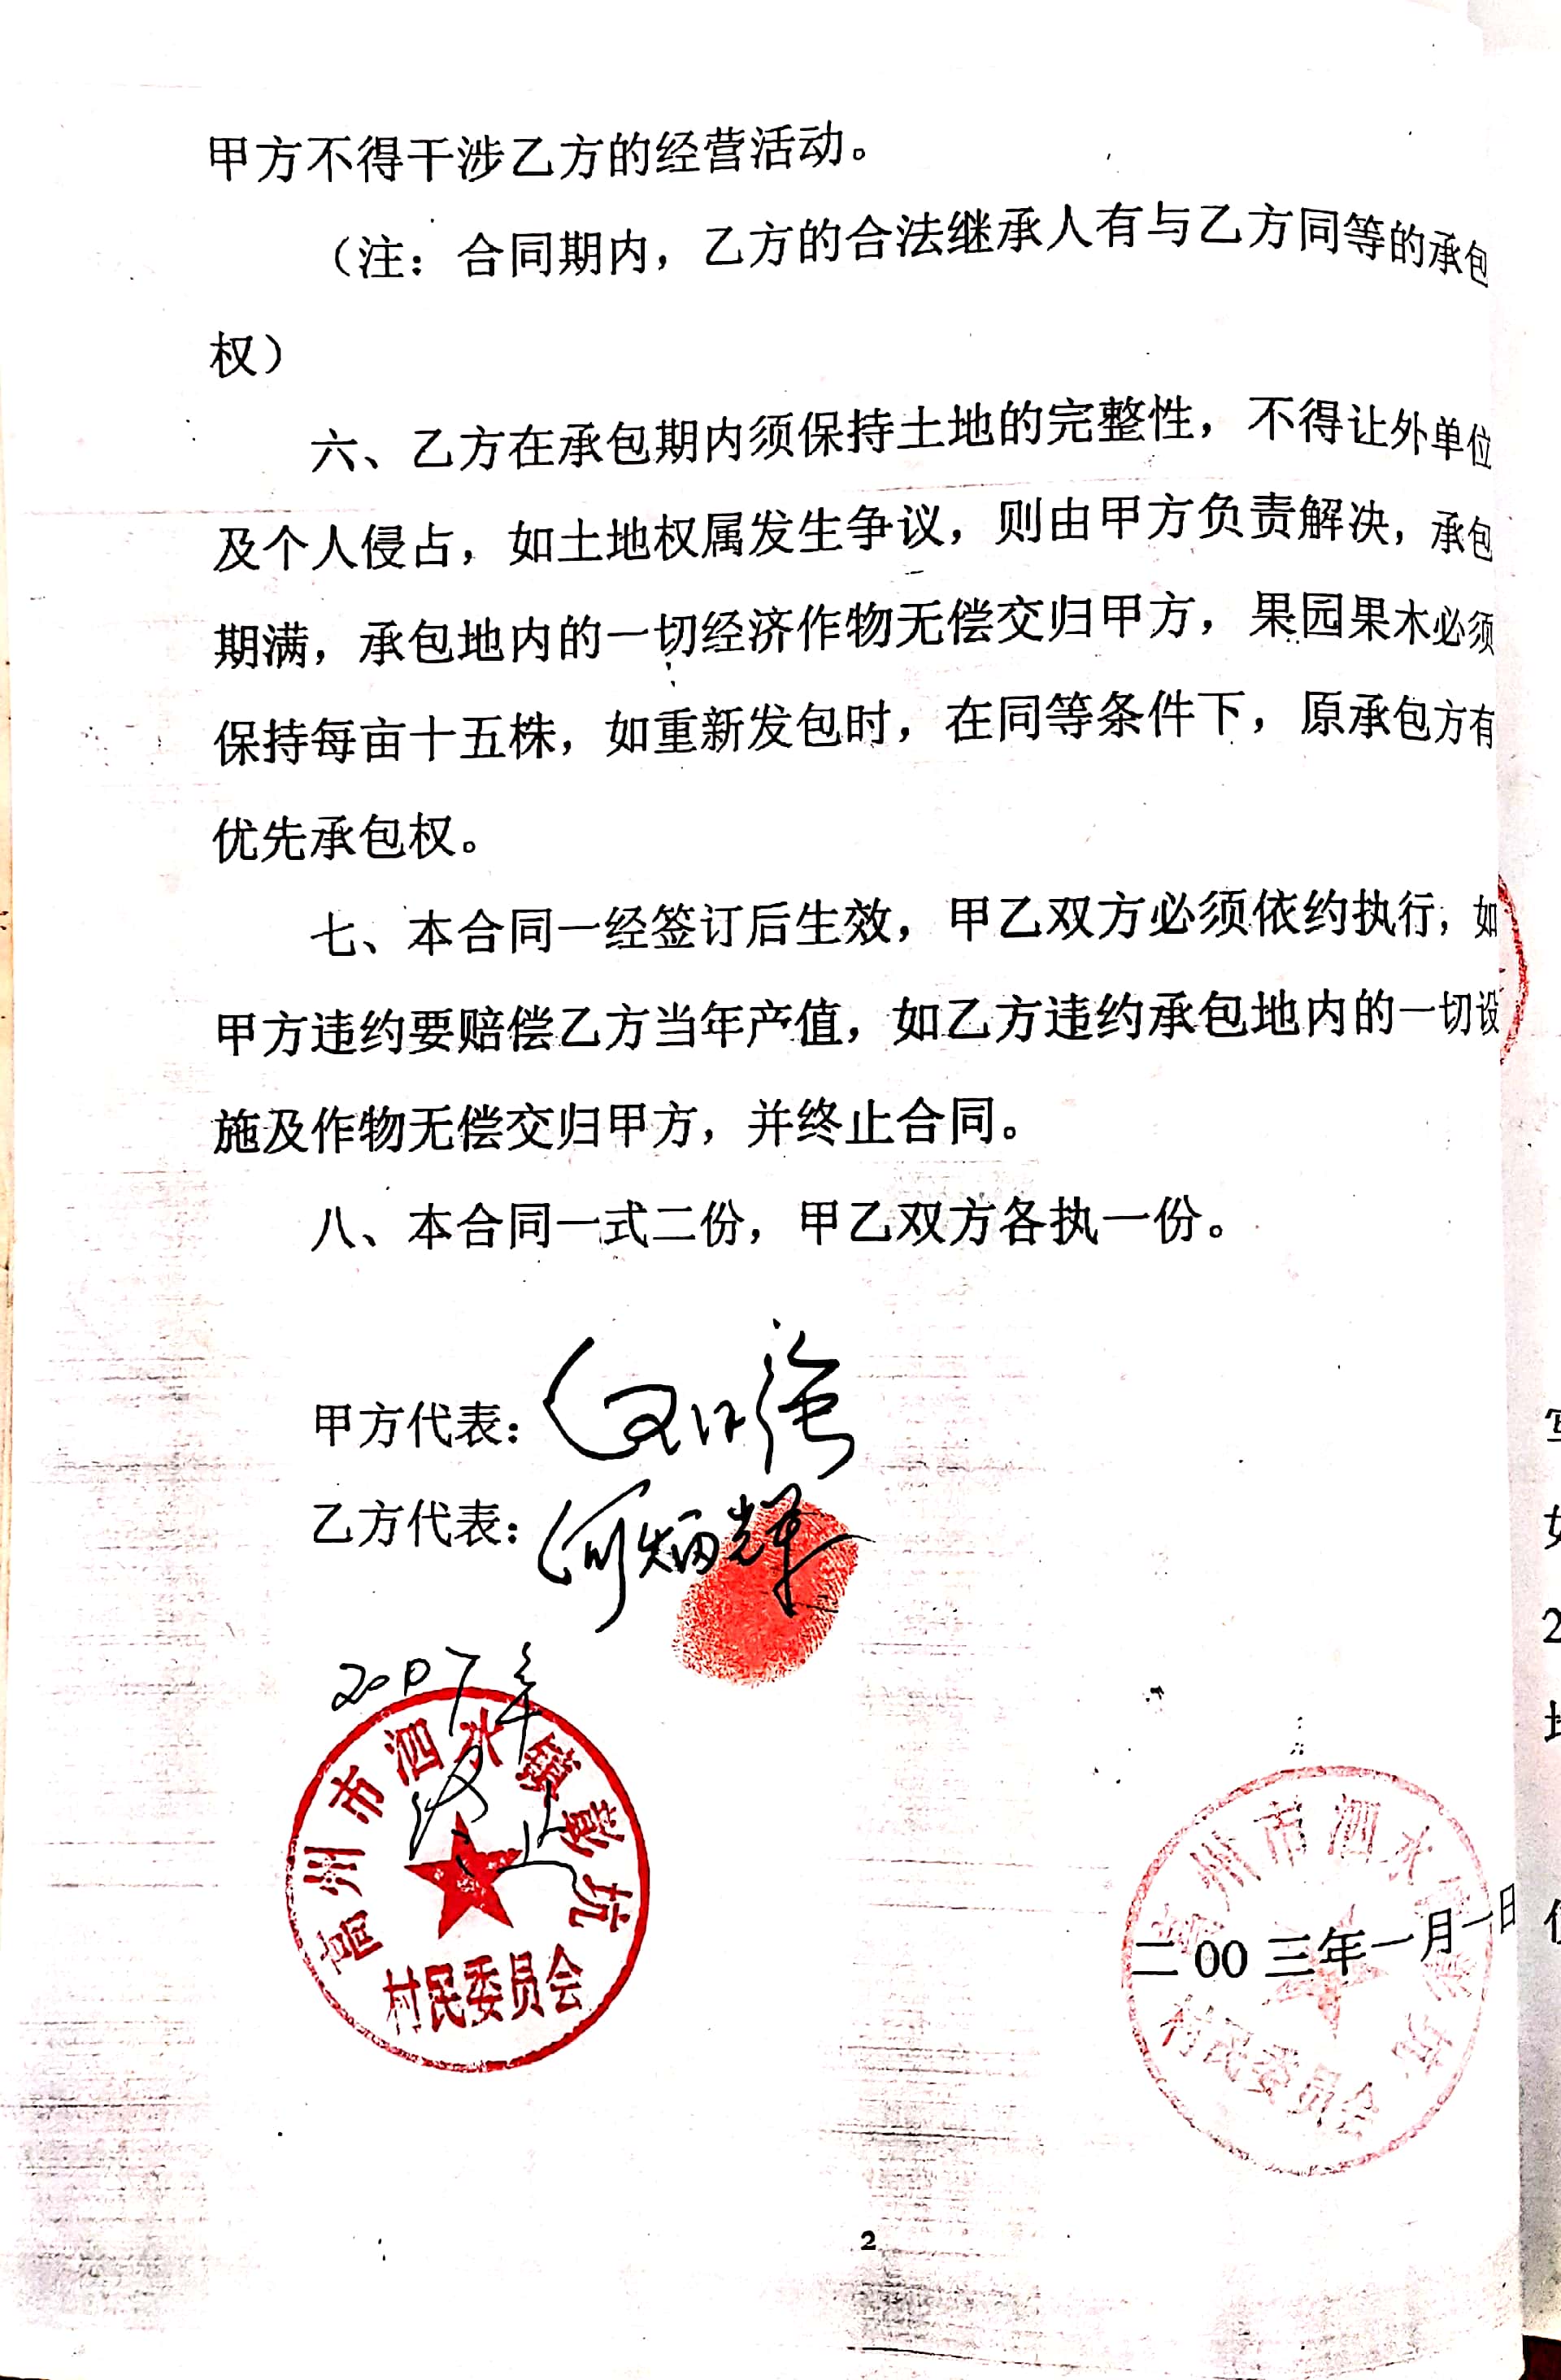 甲方不得干涉乙方的经营活动。
（注：合同期内，乙方的合法继承人有与乙方同等的承包
权）
六、乙方在承包期内须保持土地的完整性，不得让外单位
及个人侵占，如土地权属发生争议，则由甲方负责解决，承包
期满，承包地内的一切经济作物无偿交归甲方，果园果木必须
保持每亩十五株，如重新发包时，在同等条件下，原承包方有
优先承包权。
七、本合同一经签订后生效，甲乙双方必须依约执行，如
甲方违约要赔偿乙方当年产值，如乙方违约承包地内的一切设
施及作物无偿交归甲方，并终止合同。
八、本合同一式二份，甲乙双方各执一份。
甲方代表：
乙方代表：何炳辉
2007年
终止
高州市泗水镇彭坑
村民委员会
高州市泗水镇彭坑
二00三年一月一日
村民委员会
2